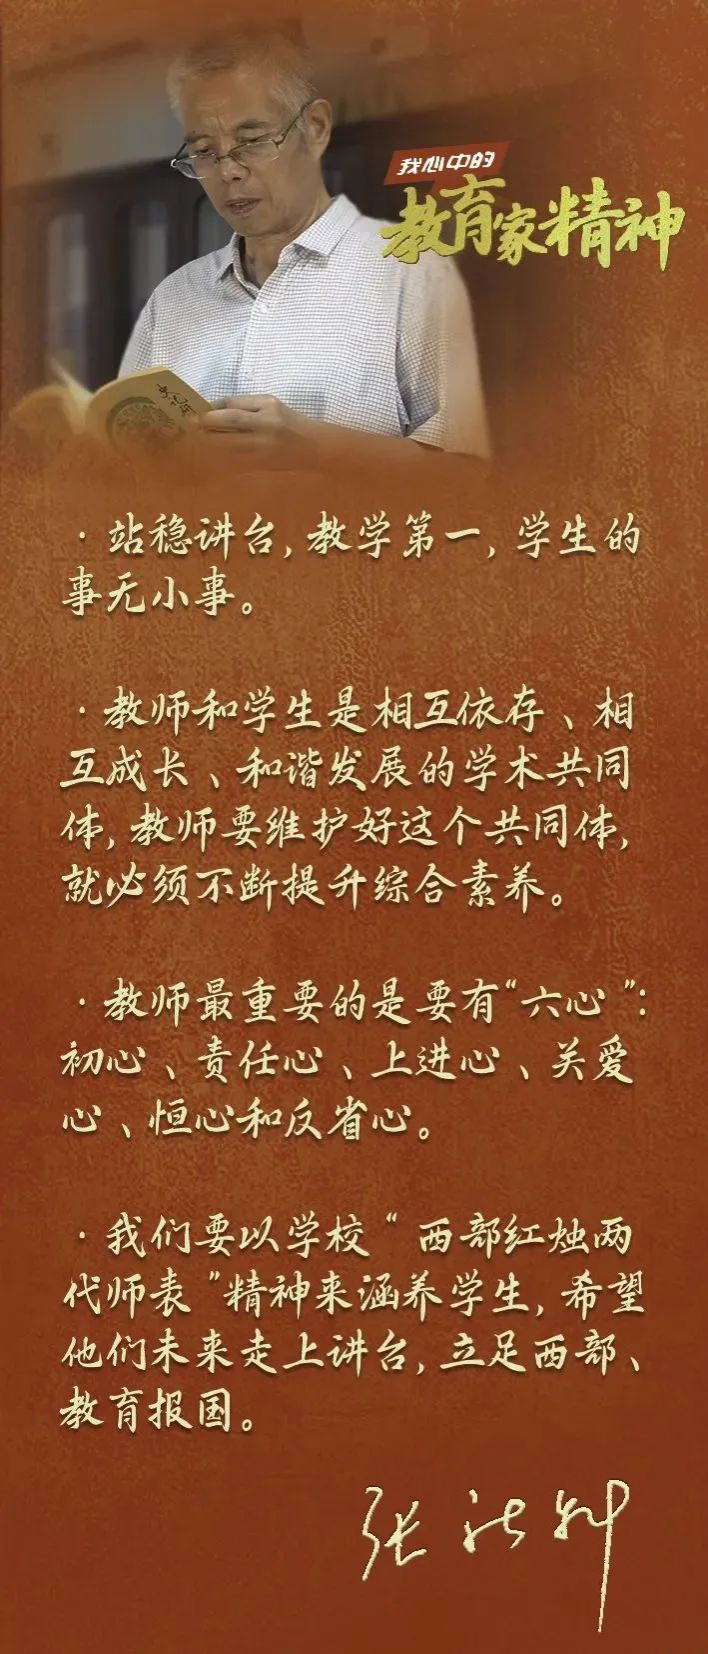 我心中的
教育家精神
·站稳讲台,教学第一,学生的
事无小事。
·教师和学生是相互依存、相
互成长、和谐发展的学术共同
体,教师要维护好这个共同体,
就必须不断提升综合素养。
·教师最重要的是要有“六心”:
初心、责任心、上进心、关爱
心、恒心和反省心。
·我们要以学校“西部红烛两
代师表”精神来涵养学生,希望
他们未来走上讲台,立足西部、
教育报国。
张